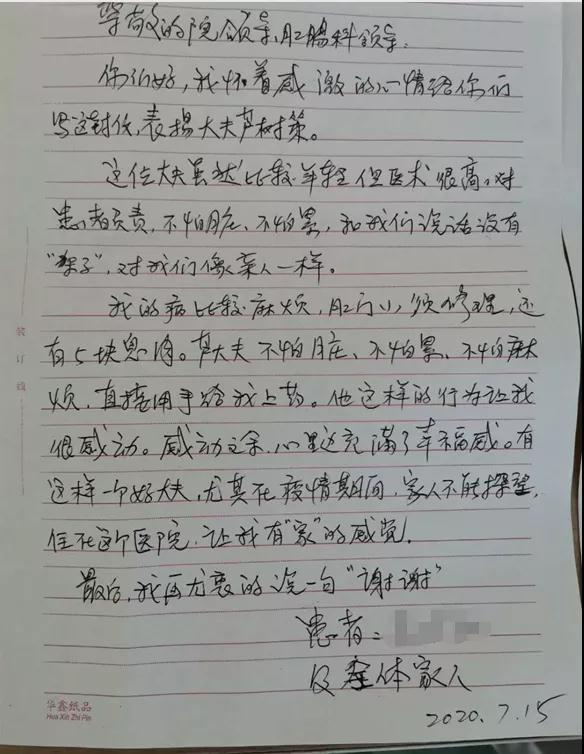 尊敬的院领导、肛肠科领导:
你们好,我怀着感激的心情给你们
写这封信,表扬大夫芦树策。
这位大夫虽然比较年轻但医术很高。对
患者负责,不怕脏、不怕累,和我们说话没有
“架子”,对我们像亲人一样。
我的病比较麻烦,肛门小,须修理,还
有5块息肉。芦大夫不怕脏、不怕累、不怕麻
烦,直接用手给我上药。他这样的行为让我
很感动。感动之余,心里还充满了幸福感。有
这样一个好大夫,尤其在疫情期间,家人不能探望,
住在这个医院,让我有“家”的感觉!
最后,我再尤衷的说一句“谢谢”
患者:
及全体家人
2020.7.15
装订线
华鑫纸品
Hua Xin Zhi Pin